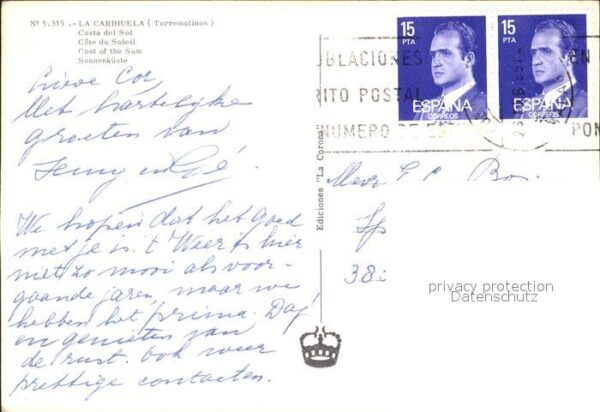 Nº 5.315.-LA CARIHUELA (Torremolinos)
Costa del Sol
Côte du Soleil
Cost of the Sun
Sonnenküste
Lieve Cor,
Met hartelijke
groeten van
Jenny en Gé.
We hopen dat het goed
met je is. 't Weer is hier
niet zo mooi als voor-
gaande jaren, maar we
hebben het prima. Dag!
en genieten van
de rust. Ook weer
prettige contacten.
Ediciones "La Corona"
15
PTA
ESPAÑA
CORREOS
15
PTA
ESPAÑA
CORREOS
BLACIONES EN
RITO POSTAL
NUMERO DE PON
Mevr.
382
privacy protection
Datenschutz